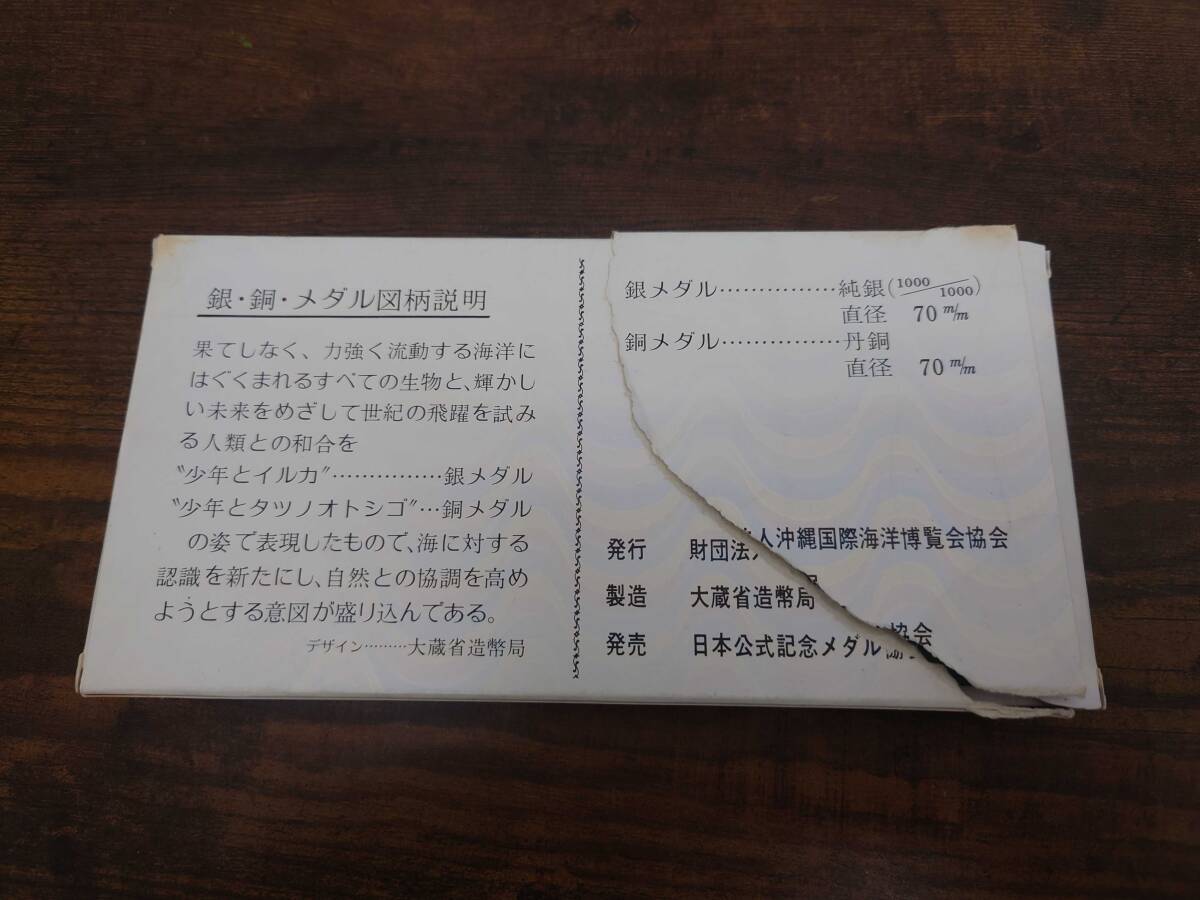 銀・銅・メダル図柄説明
果てしなく、力強く流動する海洋に
はぐくまれるすべての生物と、輝かし
い未来をめざして世紀の飛躍を試み
る人類との和合を
“少年とイルカ”……………銀メダル
“少年とタツノオトシゴ”…銅メダル
の姿で表現したもので、海に対する
認識を新たにし、自然との協調を高め
ようとする意図が盛り込んである。
デザイン………大蔵省造幣局
銀メダル……………純銀(1000/1000)
直径 70 m/m
銅メダル……………丹銅
直径 70 m/m
発行 財団法人沖縄国際海洋博覧会協会
製造 大蔵省造幣局
発売 日本公式記念メダル協会